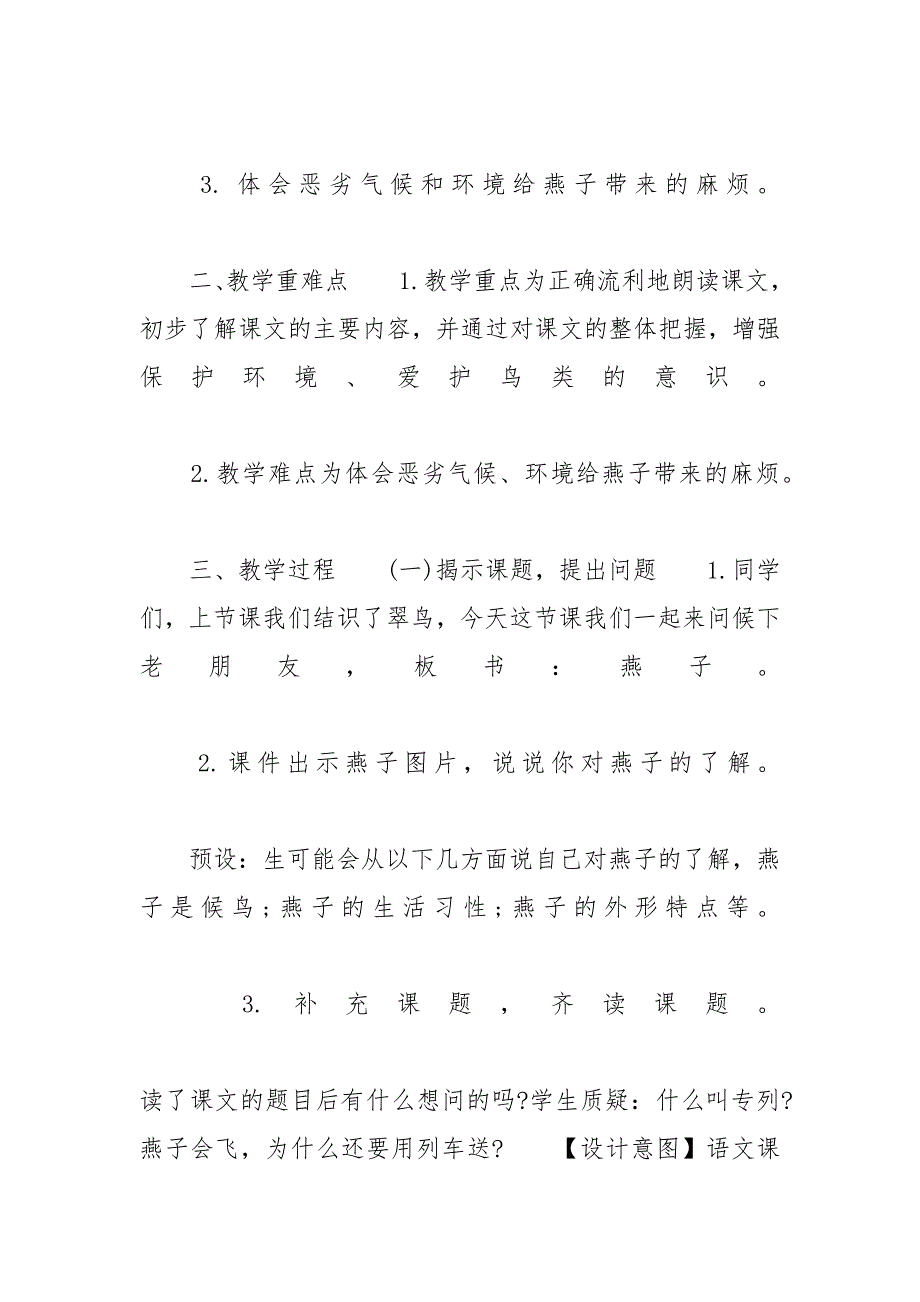 3. 体会恶劣气候和环境给燕子带来的麻烦。
二、教学重难点　　1.教学重点为正确流利地朗读课文，
初步了解课文的主要内容，并通过对课文的整体把握，增强
保护环境、爱护鸟类的意识。
2.教学难点为体会恶劣气候、环境给燕子带来的麻烦。
三、教学过程　　(一)揭示课题，提出问题　　1.同学
们，上节课我们结识了翠鸟，今天这节课我们一起来问候下
老朋友，板书：燕子。
2.课件出示燕子图片，说说你对燕子的了解。
预设：生可能会从以下几方面说自己对燕子的了解，燕
子是候鸟;燕子的生活习性;燕子的外形特点等。
3. 补充课题，齐读课题。
读了课文的题目后有什么想问的吗?学生质疑：什么叫专列?
燕子会飞，为什么还要用列车送?　　【设计意图】语文课